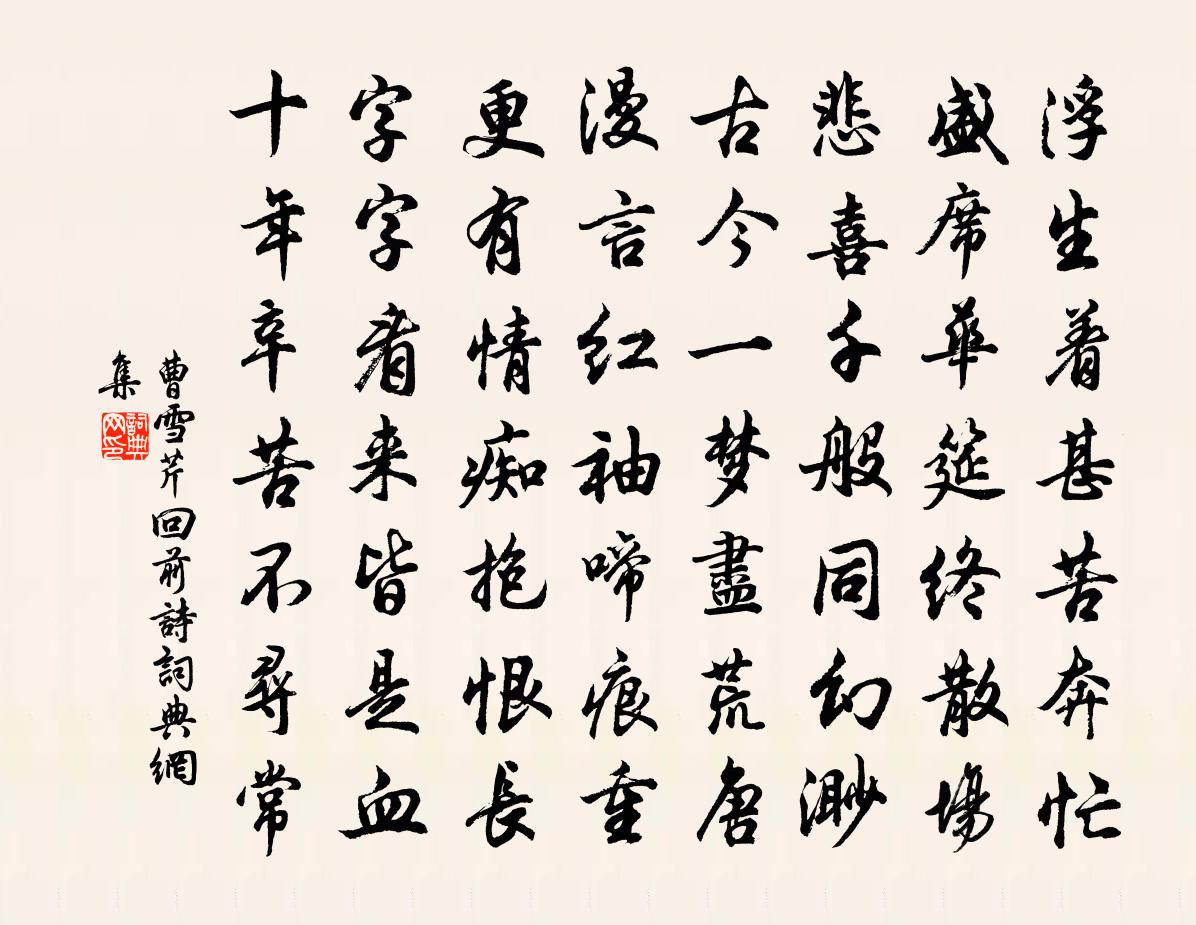 浮生着甚苦奔忙
盛席華筵终散場
悲喜千般同幻渺
古今一梦盡荒唐
漫言红袖啼痕重
更有情痴抱恨長
字字看来皆是血
十年辛苦不尋常
曹雪芹回前詩詞典網
集
詞典
网印